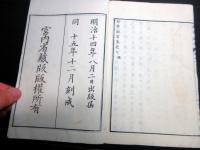 明治十四年八月二日出版届
同 十五年十二月刻成
宮内省蔵版版權所有